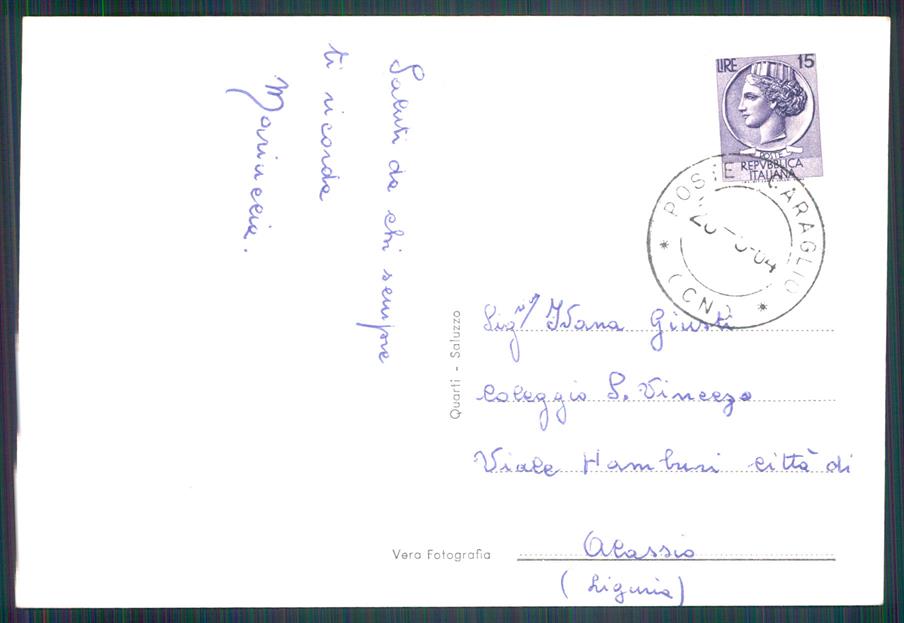 Saluti da chi sempre
ti ricorda
Mariuccia.
LIRE 15
POSTE
REPVBBLICA
ITALIANA
POSTE CARAGLIO
(CN)
Quarti - Saluzzo
Sig.na/ Ivana Giusti
Coleggio S. Vincezo
Viale Hambury città di
Alassio
(Liguria)
Vera Fotografia